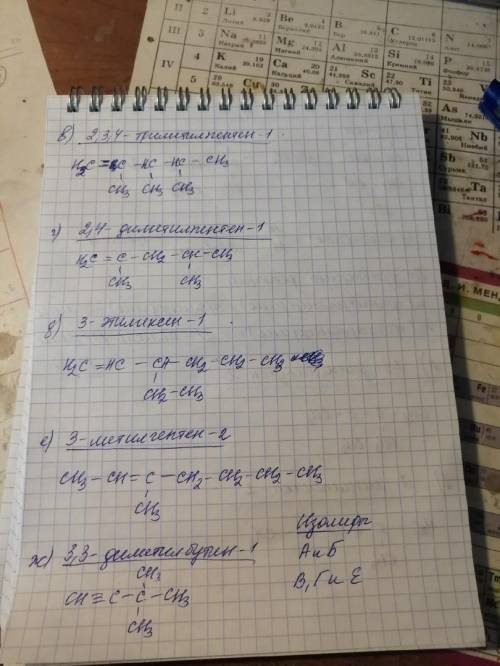 II 2 Li Литий Be Бериллий B Бор
III 3 Na Натрий Mg Магний Al Алюминий Si Кремний
IV 4 K 19 Калий Ca Кальций 21 Sc 22 Ti
5 Cu
As Мышьяк
41 Nb Ниобий
Sb Сурьма Ta Тантал
Bi
И. МЕНД
в) 2,3,4-триметилпентен-1.
H₂C = C - HC - HC - CH₃
CH₃ CH₃ CH₃
г) 2,4-диметилпентен-1
H₂C = C - CH₂ - CH - CH₃
CH₃ CH₃
д) 3-этилгексен-1
H₂C = HC - CH - CH₂ - CH₂ - CH₃
CH₂ - CH₃
е) 3-метилгептен-2
CH₃ - CH = C - CH₂ - CH₂ - CH₂ - CH₃
CH₃
ж) 3,3-диметилбутин-1
CH₃
CH ≡ C - C - CH₃
CH₃
Изомеры
А и Б
В, Г и Е